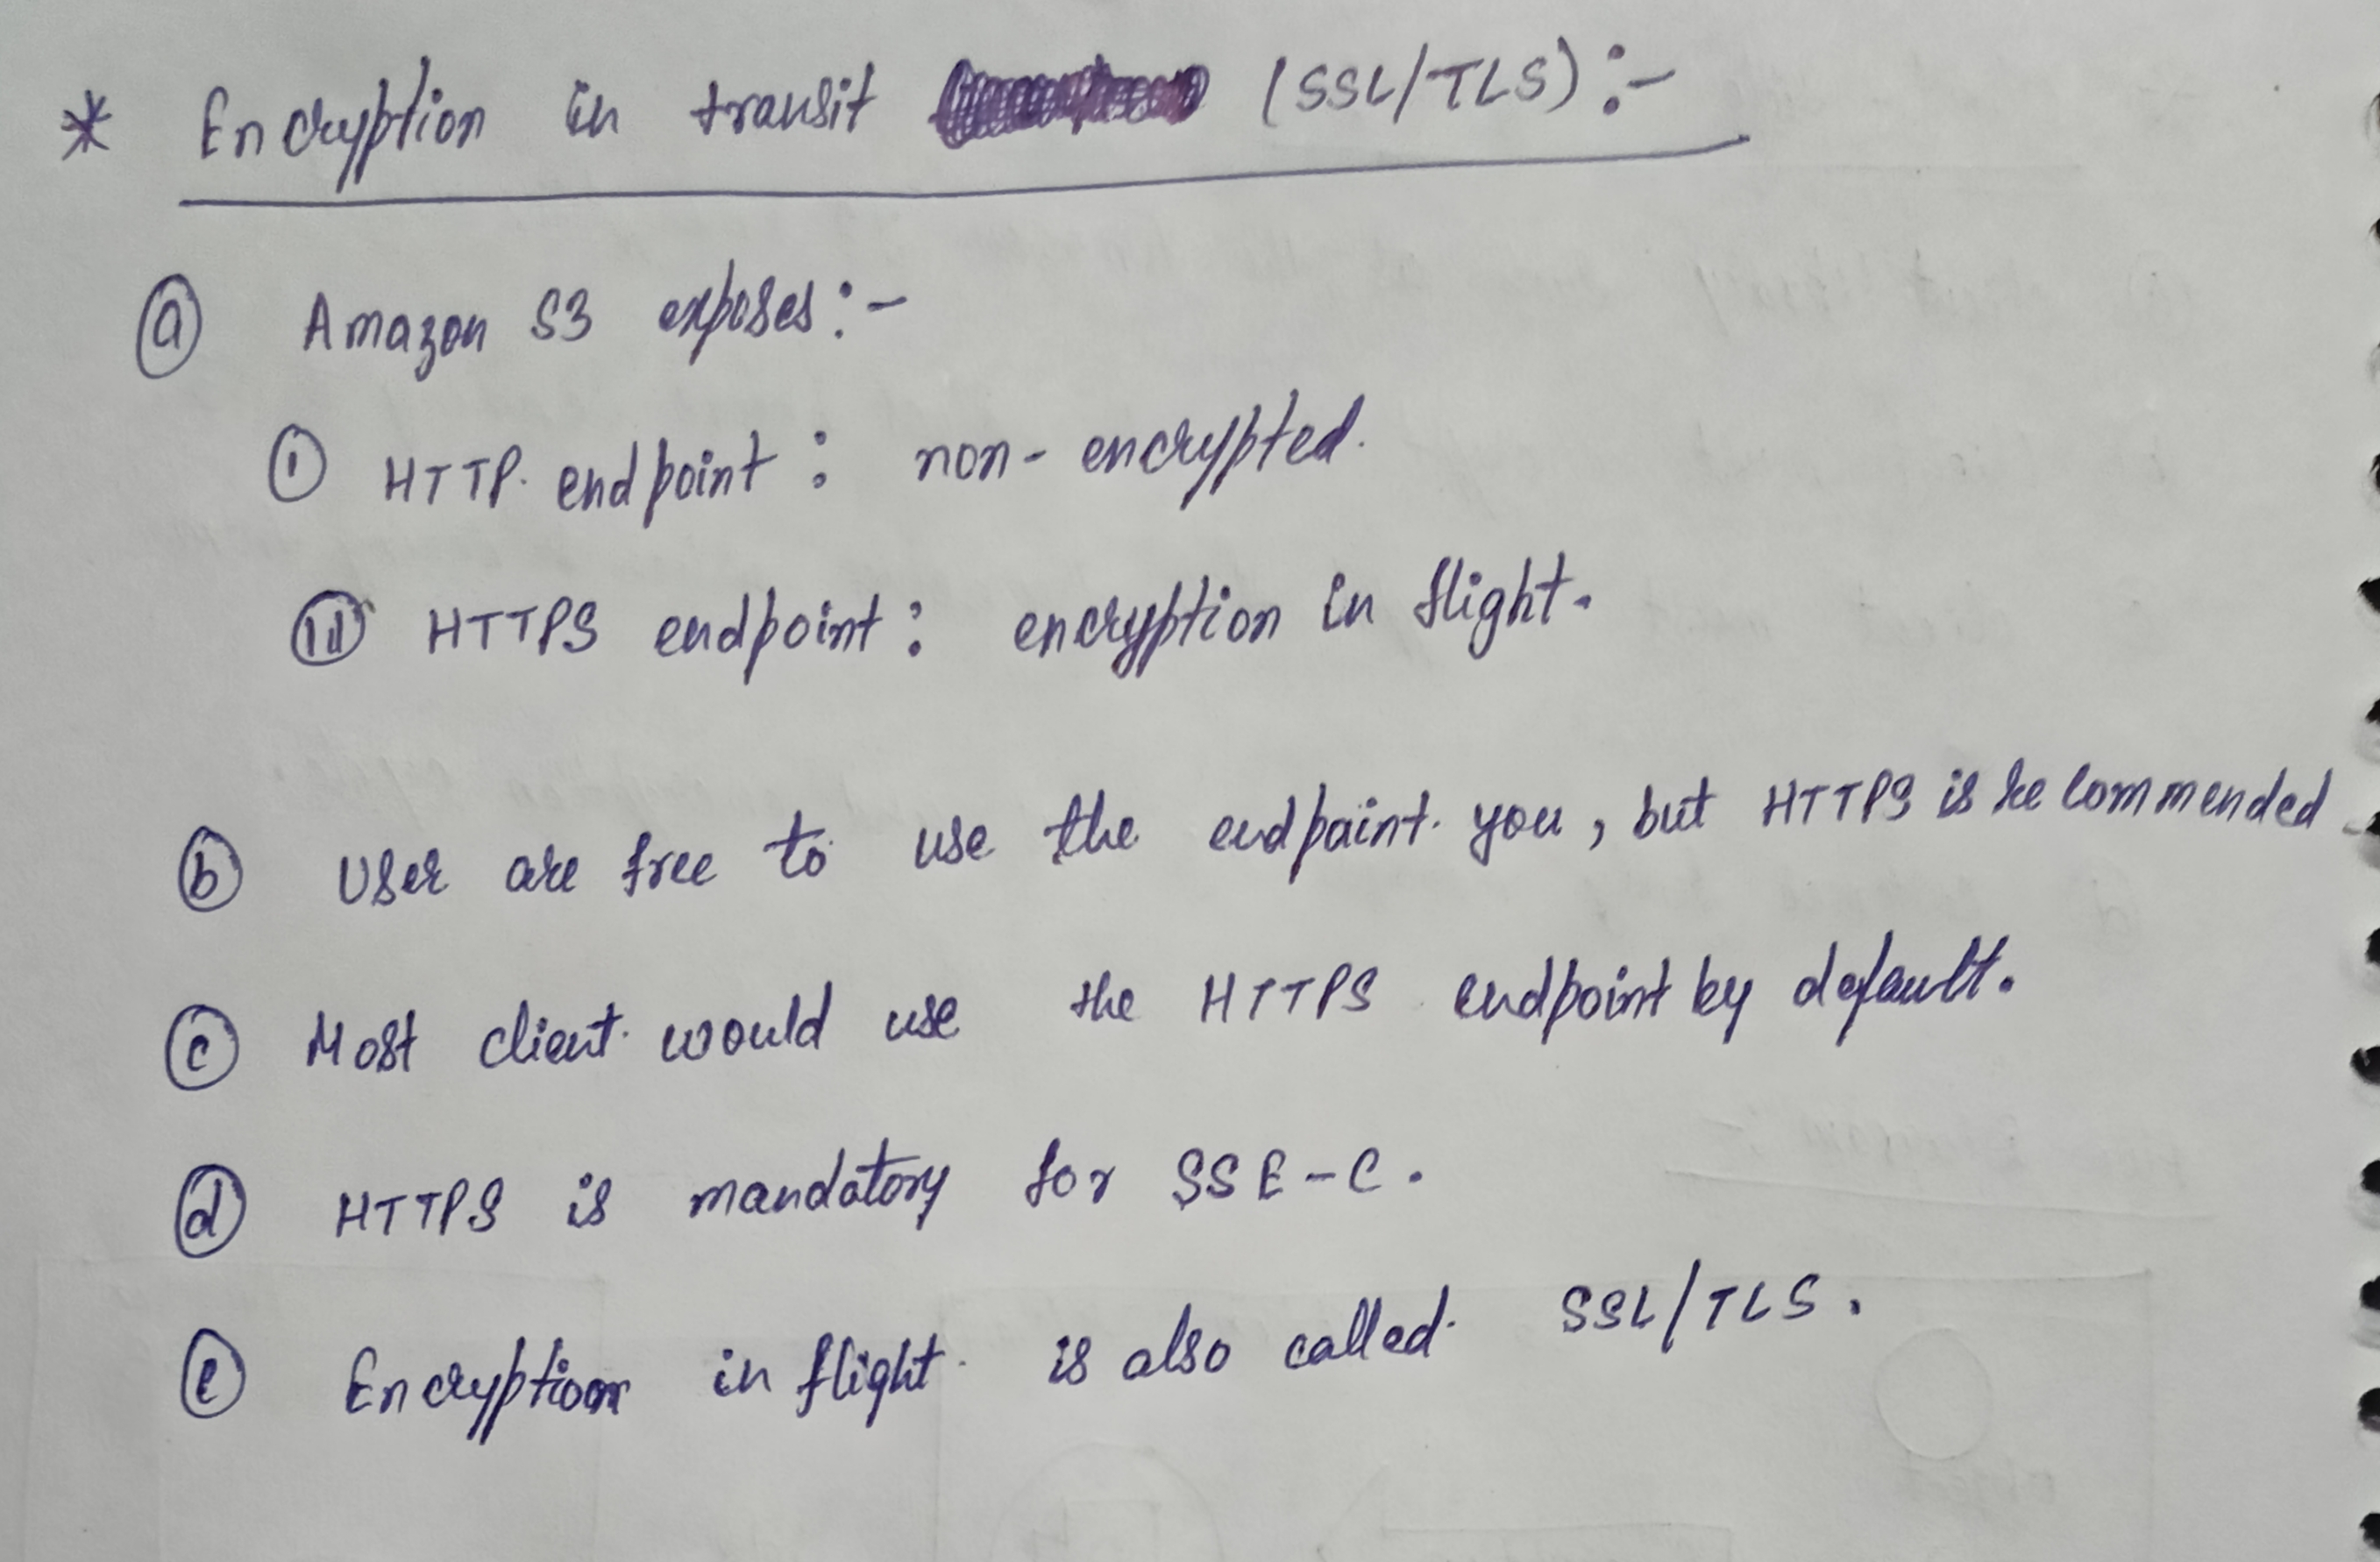 * Encryption in transit (SSL/TLS):-
(a) Amazon S3 exposes:-
(i) HTTP endpoint : non-encrypted.
(ii) HTTPS endpoint : encryption in flight.
(b) User are free to use the endpaint you, but HTTPS is recommended
(c) Most client would use the HTTPS endpoint by default.
(d) HTTPS is mandatory for SSE-C.
(e) Encryption in flight is also called SSL/TLS.